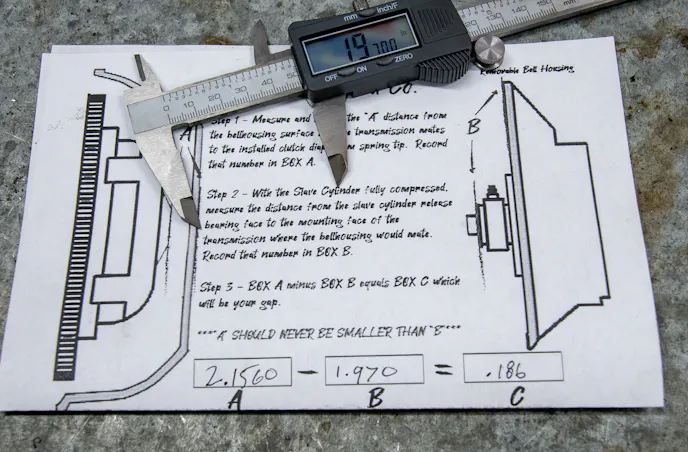 mm inch/F
OFF ON ZERO
0 10 20 30 40
Co.
Removable Bell Housing
A
B
Step 1 - Measure and the "A" distance from
the bellhousing surface transmission mates
to the installed clutch spring tip. Record
that number in BOX A.
Step 2 - With the Slave Cylinder fully compressed,
measure the distance from the slave cylinder release
bearing face to the mounting face of the
transmission where the bellhousing would mate.
Record that number in BOX B.
Step 3 - BOX A minus BOX B equals BOX C which
will be your gap.
****"A" SHOULD NEVER BE SMALLER THAN "B"****
2.1560 - 1.970 = .186
A B C